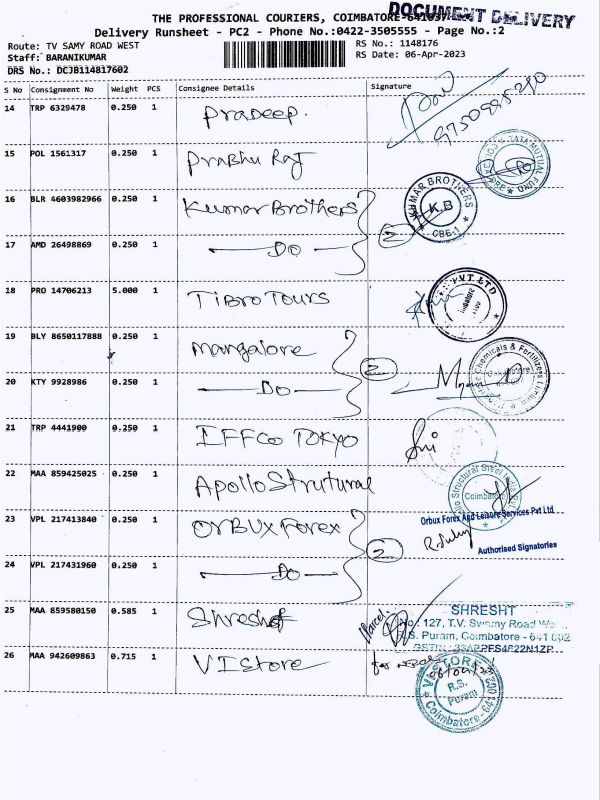 DOCUMENT DELIVERY
THE PROFESSIONAL COURIERS, COIMBATORE-641037
Delivery Runsheet - PC2 - Phone No.:0422-3505555 - Page No.:2
Route: TV SAMY ROAD WEST
RS No.: 1148176
Staff: BARANIKUMAR
RS Date: 06-Apr-2023
DRS No.: DCJB114817602
S No Consignment No Weight PCS Consignee Details Signature
14 TRP 6329478 0.250 1 Pradeep.
15 POL 1561317 0.250 1 Prabhu Raj
TATA MUTUAL FUND
16 BLR 4603982966 0.250 1 Kumar Brothers
KUMAR BROTHERS K.B CBE-1
2
17 AMD 26498869 0.250 1 DO
18 PRO 14706213 5.000 1 Tibro Tours
PVT. LTD
19 BLY 8650117888 0.250 1 Mangalore
2
Chemicals & Fertilizers Limited
20 KTY 9928986 0.250 1 DO
21 TRP 4441900 0.250 1 IFFCO TOKYO
Sri
22 MAA 859425025 0.250 1 Apollo Strutural
Structural Steel Coimbatore
23 VPL 217413840 0.250 1 ORBUX Forex
Orbux Forex And Leisure Services Pvt Ltd
2
Authorised Signatories
24 VPL 217431960 0.250 1 DO
25 MAA 859580150 0.585 1 Shresht
Parcel.
SHRESHT
No: 127, T.V. Swamy Road
R.S. Puram, Coimbatore - 641 002
26 MAA 942609863 0.715 1 VI Store
for
06/04/23
VI STORE R.S. Puram Coimbatore - 641002